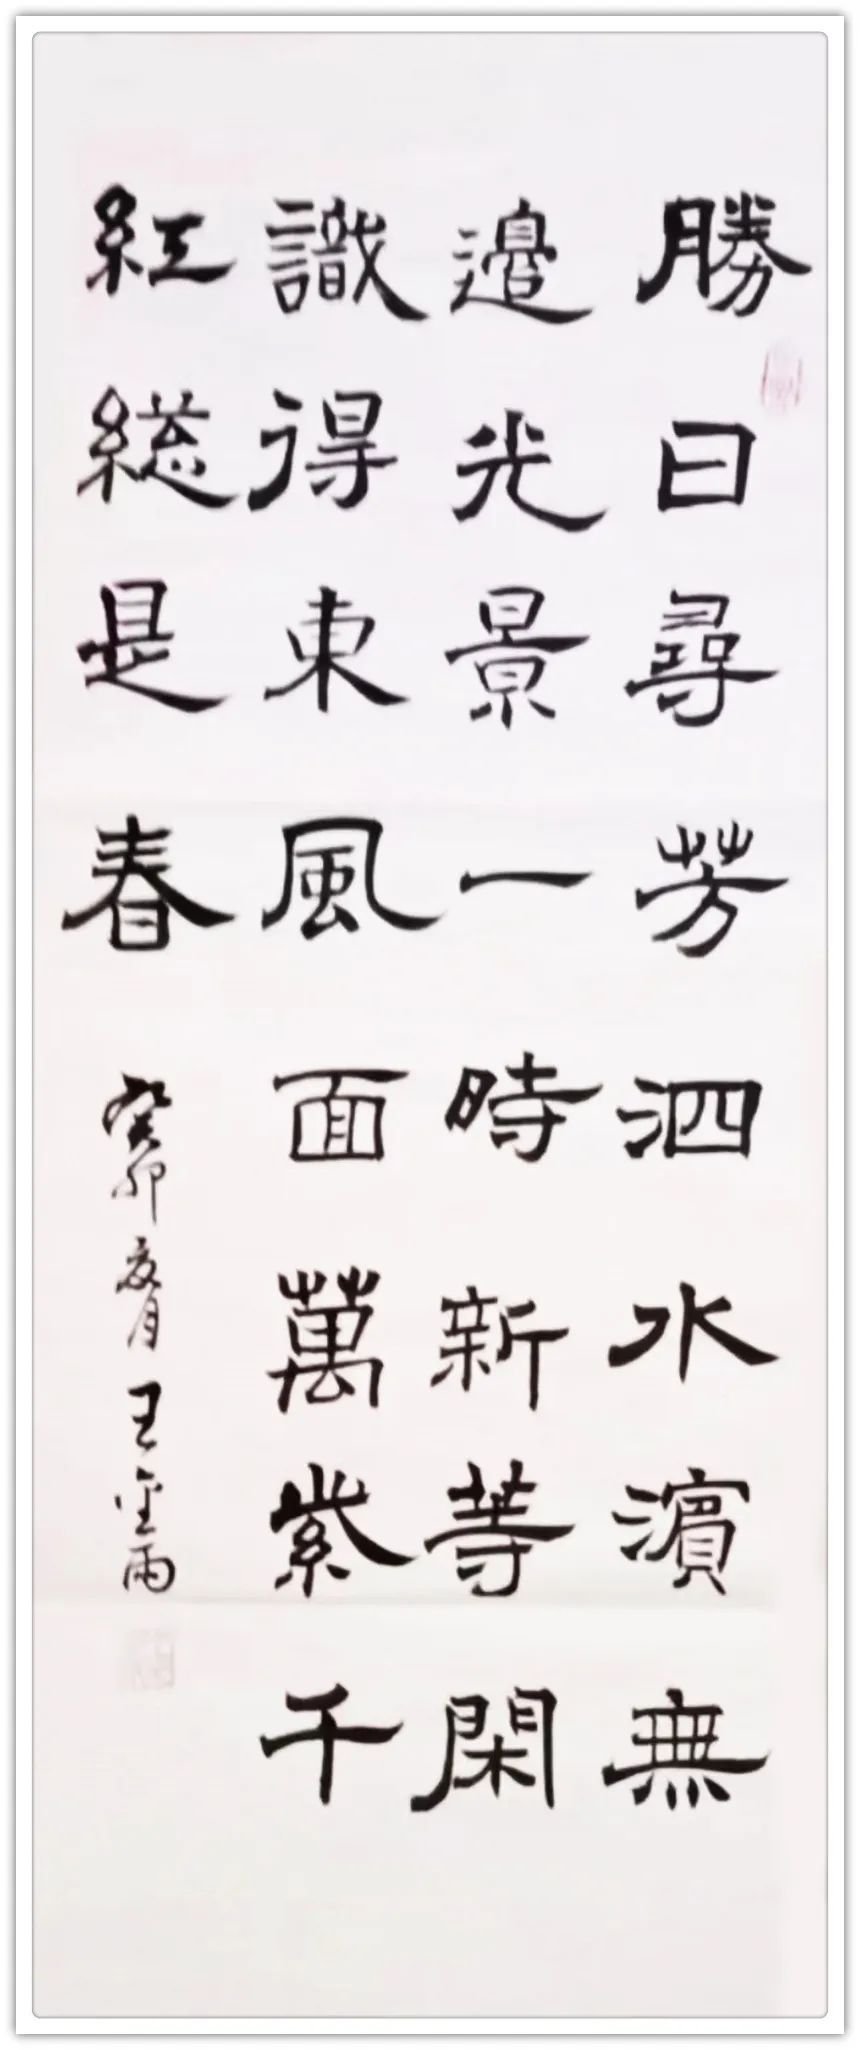 勝日尋芳泗水濱無
邊光景一時新等閑
識得東風面萬紫千
紅総是春
癸卯夏月王金雨